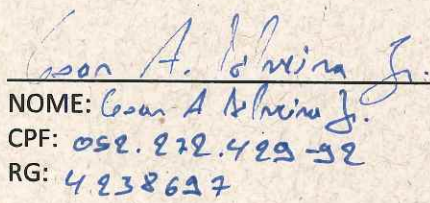 Cesar A. Silveira Jr.
NOME: Cesar A Silveira Jr.
CPF: 052.272.429-92
RG: 4238697